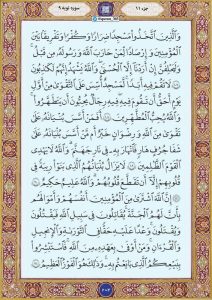 جزء ۱۱
سوره توبه ۹
وَٱلَّذِينَ ٱتَّخَذُوا۟ مَسْجِدًا ضِرَارًا وَكُفْرًا وَتَفْرِيقًۢا بَيْنَ
ٱلْمُؤْمِنِينَ وَإِرْصَادًا لِّمَنْ حَارَبَ ٱللَّهَ وَرَسُولَهُۥ مِن قَبْلُ
وَلَيَحْلِفُنَّ إِنْ أَرَدْنَآ إِلَّا ٱلْحُسْنَىٰ وَٱللَّهُ يَشْهَدُ إِنَّهُمْ لَكَٰذِبُونَ
۱۰۷ لَا تَقُمْ فِيهِ أَبَدًا لَّمَسْجِدٌ أُسِّسَ عَلَى ٱلتَّقْوَىٰ مِنْ أَوَّلِ
يَوْمٍ أَحَقُّ أَن تَقُومَ فِيهِ فِيهِ رِجَالٌ يُحِبُّونَ أَن يَتَطَهَّرُوا۟
وَٱللَّهُ يُحِبُّ ٱلْمُطَّهِّرِينَ ۱۰۸ أَفَمَنْ أَسَّسَ بُنْيَٰنَهُۥ عَلَىٰ
تَقْوَىٰ مِنَ ٱللَّهِ وَرِضْوَٰنٍ خَيْرٌ أَم مَّنْ أَسَّسَ بُنْيَٰنَهُۥ عَلَىٰ
شَفَا جُرُفٍ هَارٍ فَٱنْهَارَ بِهِۦ فِى نَارِ جَهَنَّمَ وَٱللَّهُ لَا يَهْدِى
ٱلْقَوْمَ ٱلظَّٰلِمِينَ ۱۰۹ لَا يَزَالُ بُنْيَٰنُهُمُ ٱلَّذِى بَنَوْا۟ رِيبَةً فِى
قُلُوبِهِمْ إِلَّآ أَن تَقَطَّعَ قُلُوبُهُمْ وَٱللَّهُ عَلِيمٌ حَكِيمٌ ۱۱۰
۞ إِنَّ ٱللَّهَ ٱشْتَرَىٰ مِنَ ٱلْمُؤْمِنِينَ أَنفُسَهُمْ وَأَمْوَٰلَهُم
بِأَنَّ لَهُمُ ٱلْجَنَّةَ يُقَٰتِلُونَ فِى سَبِيلِ ٱللَّهِ فَيَقْتُلُونَ
وَيُقْتَلُونَ وَعْدًا عَلَيْهِ حَقًّا فِى ٱلتَّوْرَىٰةِ وَٱلْإِنجِيلِ
وَٱلْقُرْءَانِ وَمَنْ أَوْفَىٰ بِعَهْدِهِۦ مِنَ ٱللَّهِ فَٱسْتَبْشِرُوا۟
بِبَيْعِكُمُ ٱلَّذِى بَايَعْتُم بِهِۦ وَذَٰلِكَ هُوَ ٱلْفَوْزُ ٱلْعَظِيمُ ۱۱۱
۲۰۴